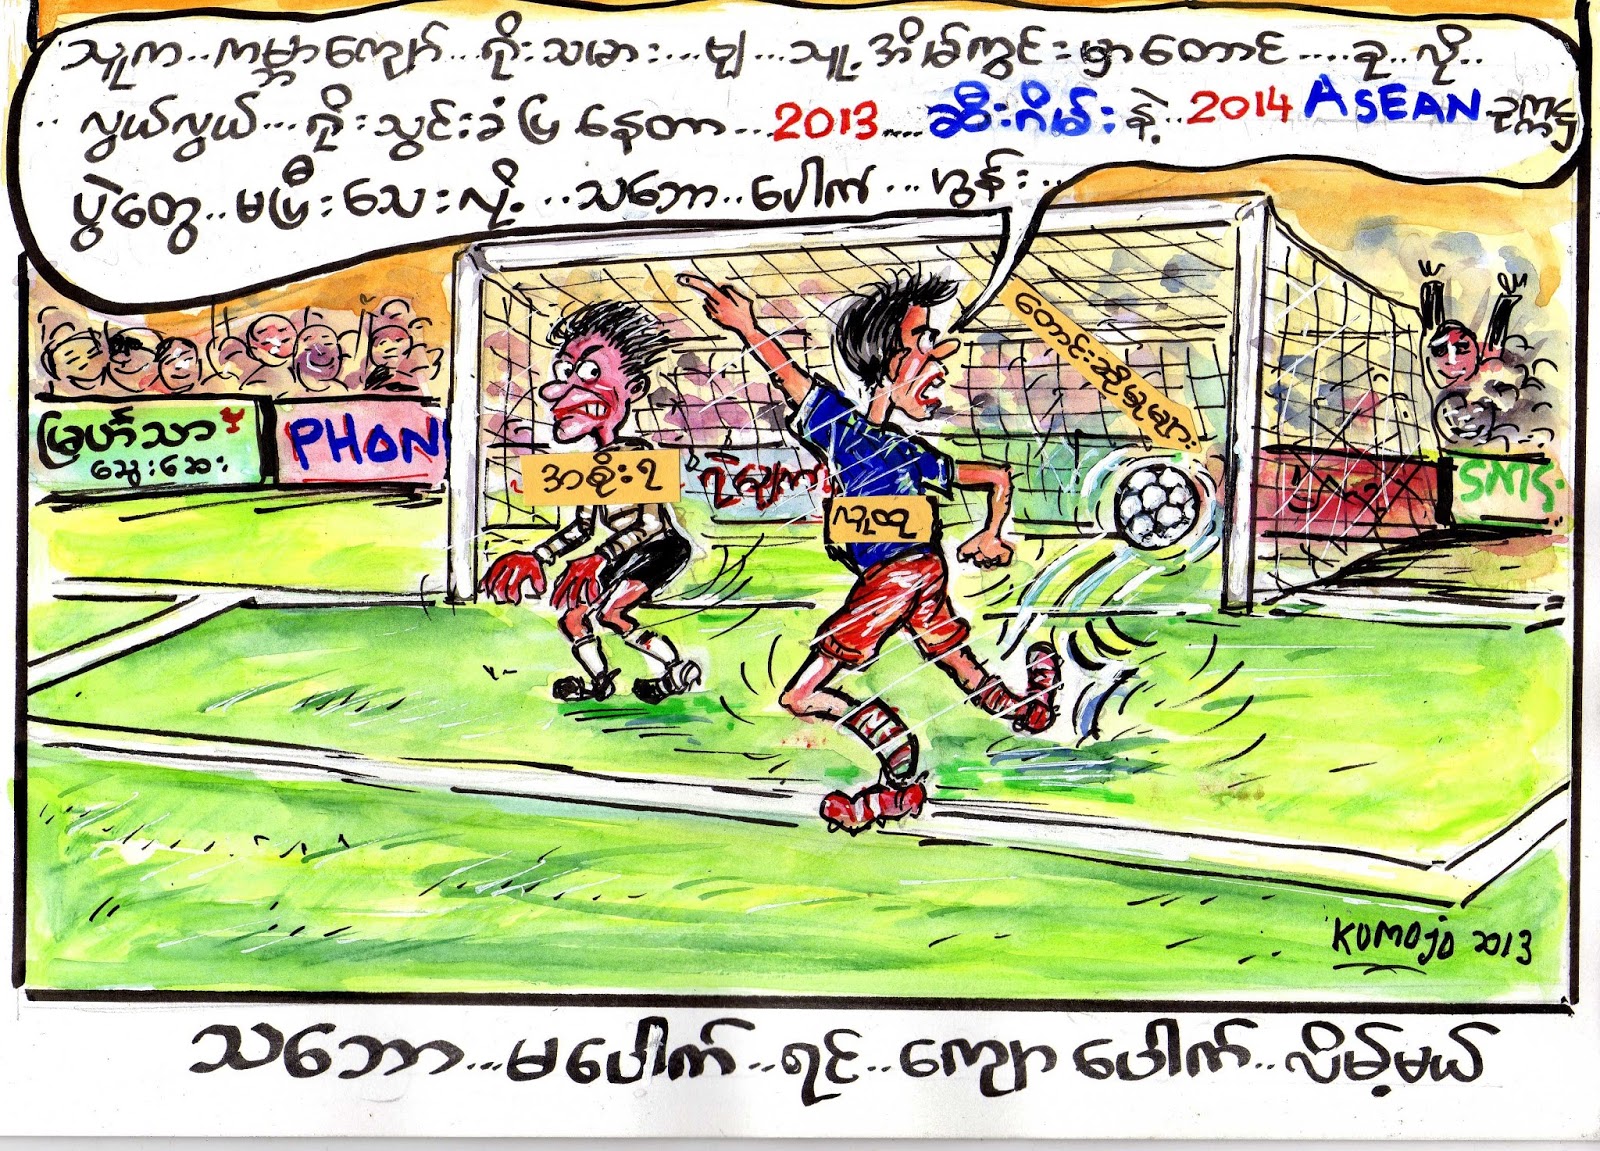 သူက..ကမ္ဘာကျော်...ဂိုးသမား...ဗျ...သူ့အိမ်ကွင်းမှာတောင်....ခု..လို..
..လွယ်လွယ်...ဂိုးသွင်းခံပြနေတာ...2013....ဆီးဂိမ်းနဲ့..2014 ASEAN ဥက္ကဋ္ဌ
ပွဲတွေ..မပြီးသေးလို့...သဘော..ပေါက်...ဟွန်း...
တောင်းဆိုမှုများ
မြဟင်္သာ
သွေးဆေး
PHON
အစိုးရ
လူထု
KOMOJO 2013
သဘော...မပေါက်..ရင်..ကျောပေါက်..လိမ့်မယ်